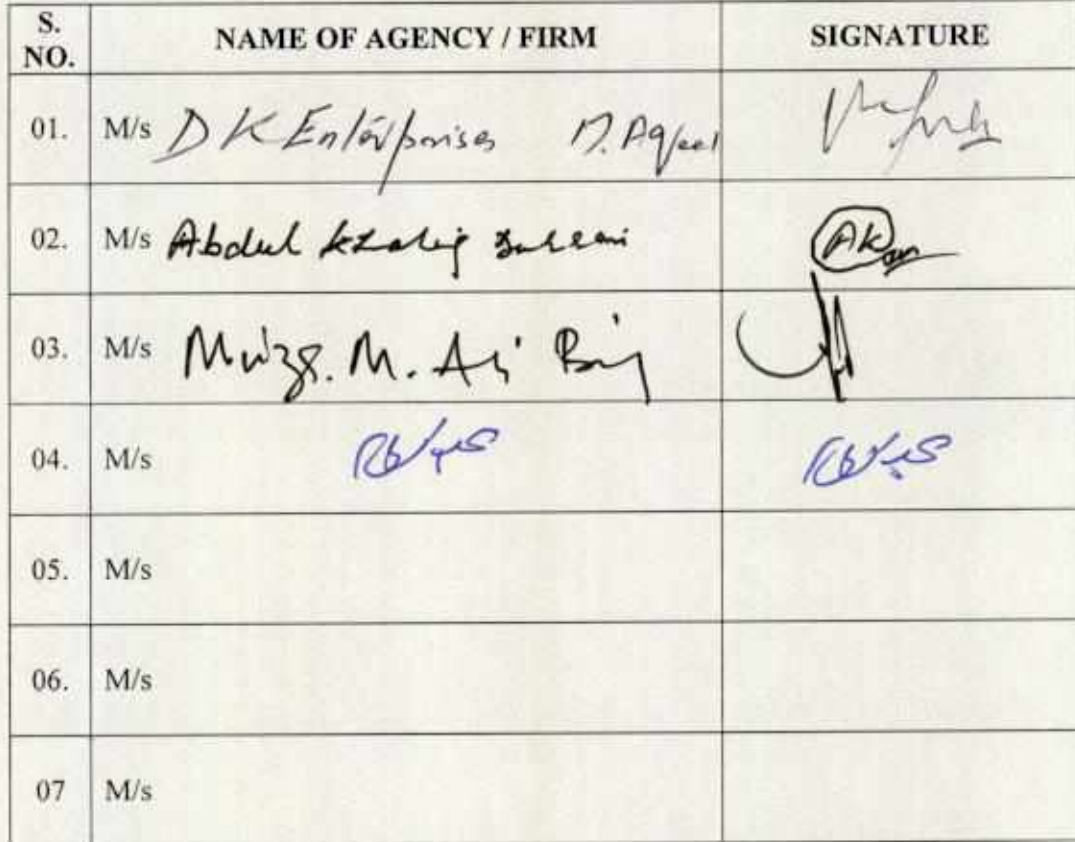 S. NO. NAME OF AGENCY / FIRM SIGNATURE
01. M/s D K Enterprises M. Aqeel
02. M/s Abdul Khaliq
03. M/s M. Ali
04. M/s
05. M/s
06. M/s
07 M/s